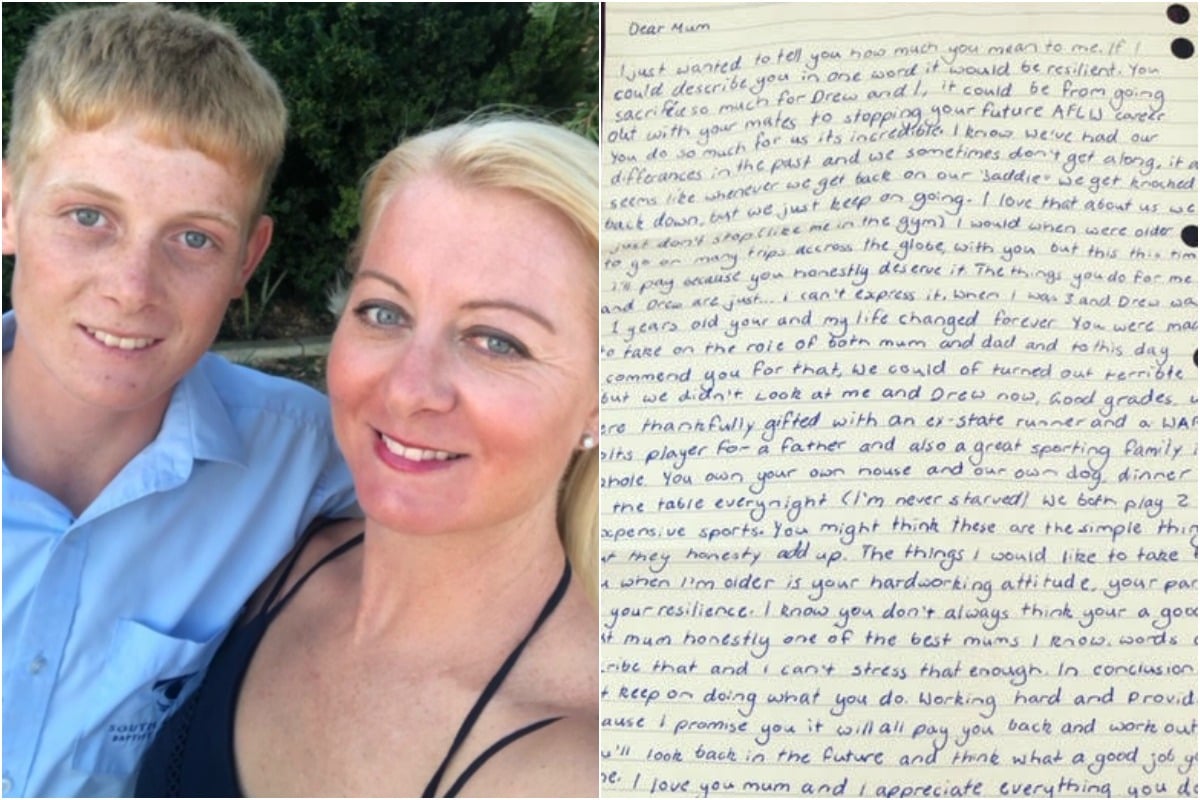 SOUTH
BAPTIST
Dear Mum
I just wanted to tell you how much you mean to me. If I
could describe you in one word it would be resilient. You
sacrifice so much for Drew and I, it could be from going
out with your mates to stopping your future AFLW career
You do so much for us its incredible. I know we've had our
differances in the past and we sometimes don't get along, it
seems like whenever we get back on our saddle we get knocked
back down, but we just keep on going. I love that about us we
just don't stop (like me in the gym) I would when were older
to go on many trips accross the globe, with you but this this tim
i'll pay because you honestly deserve it. The things you do for me
and Drew are just... i can't express it. When I was 3 and Drew wa
1 years old your and my life changed forever You were mad
to take on the role of both mum and dad and to this day
commend you for that, We could of turned out terrible
but we didn't Look at me and Drew now, Good grades, w
ere thankfully gifted with an ex-state runner and a WAF
olts player for a father and also a great sporting family i
whole. You own your own house and our own dog, dinner
the table everynight (I'm never starved) We both play 2
xpensive sports. You might think these are the simple thin
t they honesty add up. The things I would like to take
u when I'm older is your hardworking attitude, your par
your resilience. I know you don't always think your a good
st mum honestly one of the best mums I know. words
cribe that and i can't stress that enough. In conclusion
t keep on doing what you do. Working hard and Provid
ause I promise you it will all pay you back and work out
u'll look back in the future and think what a good job yo
ne. I love you mum and I appreciate everything you do